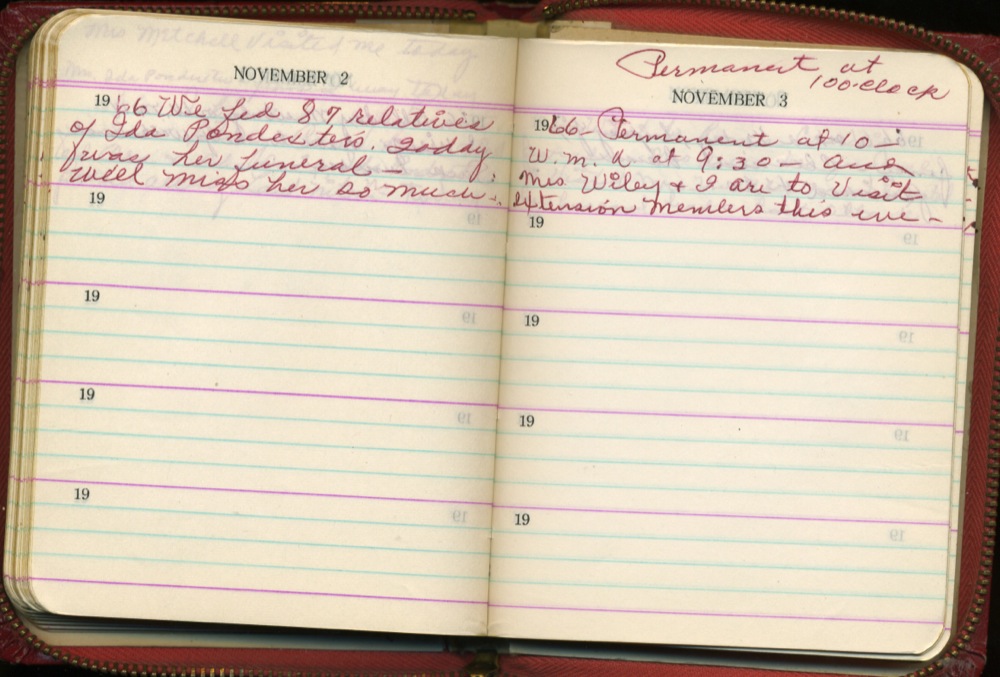 Mrs Mitchell Visited me today
NOVEMBER 2
1966 We fed 87 relatives
of Ida Pondesters. Today
was her funeral -
will miss her so much -
19
19
19
19
Permanent at
10 o-clock
NOVEMBER 3
1966 - Permanent at 10 -
W. m. d at 9:30 - and
Mrs. Wiley & I are to Visit
extension members this eve -
19
19
19
19